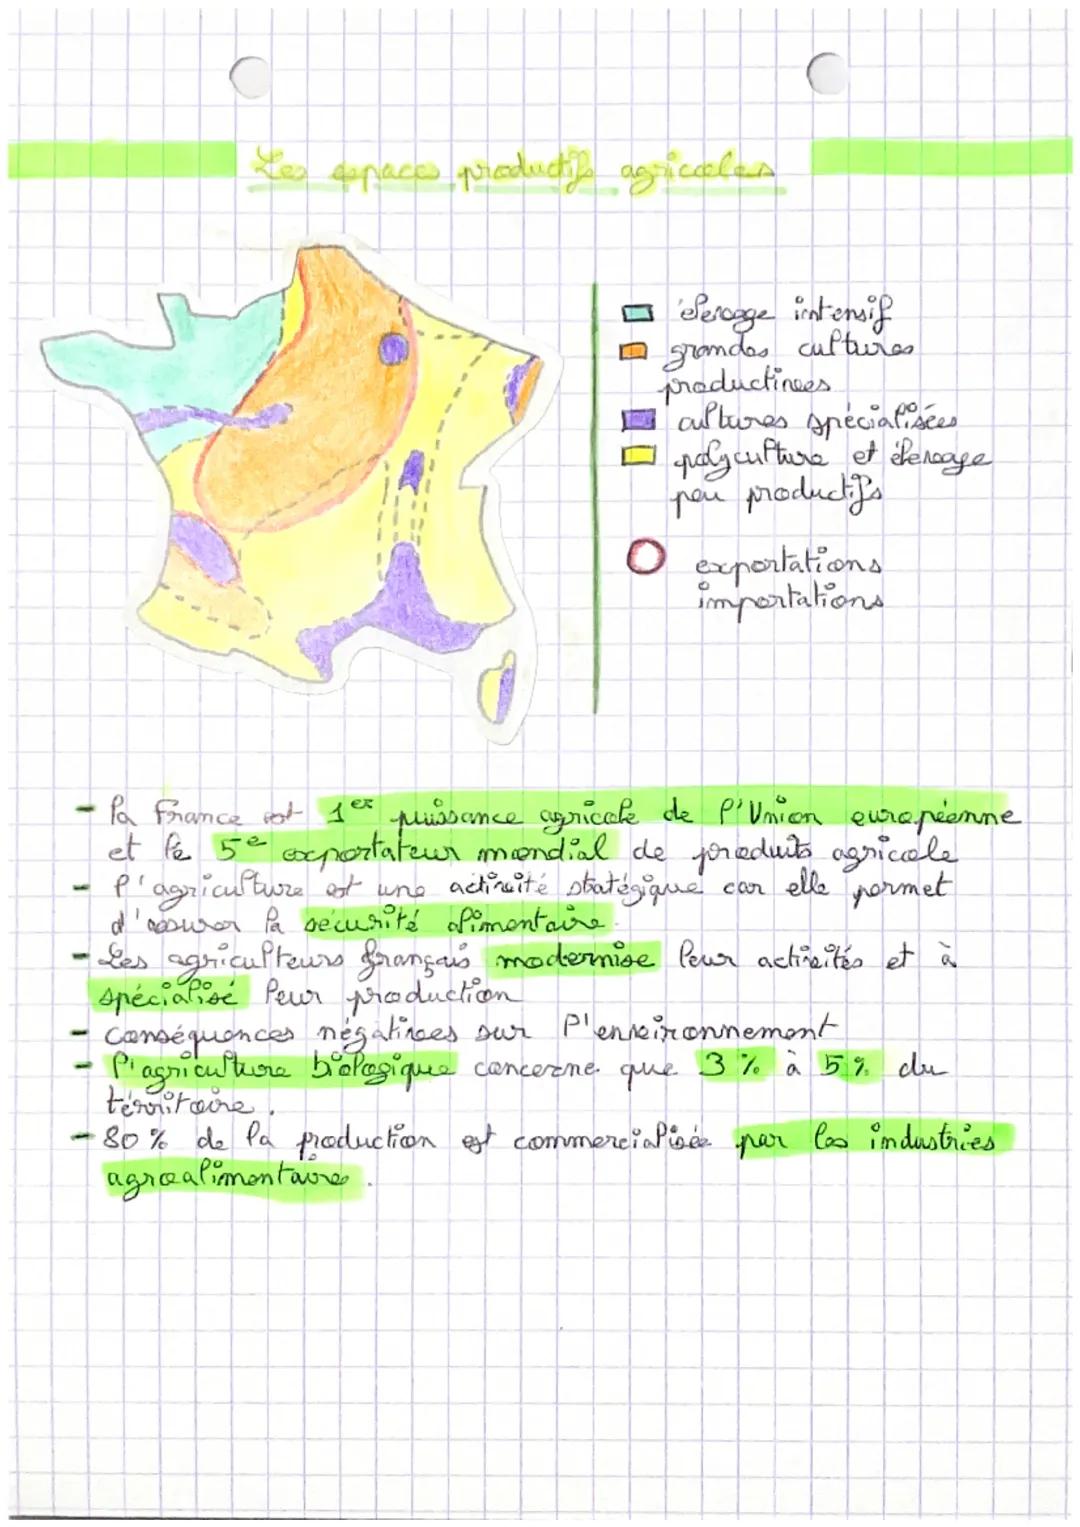 Les espaces productifs agricoles
élevage intensif
grandes cultures
productives
cultures spécialisées
polyculture et élevage
peu productifs
exportations
importations
- la France est 1er puissance agricole de l'Union européenne
et le 5e exportateur mondial de produits agricole
- l'agriculture est une activité stratégique car elle permet
d'assurer la sécurité alimentaire.
- Les agriculteurs français modernise leur activités et à
spécialisé leur production
- conséquences négatives sur l'environnement
- l'agriculture biologique concerne que 3% à 5% du
térritoire.
- 80% de la production est commercialisée par les industries
agroalimentaires.